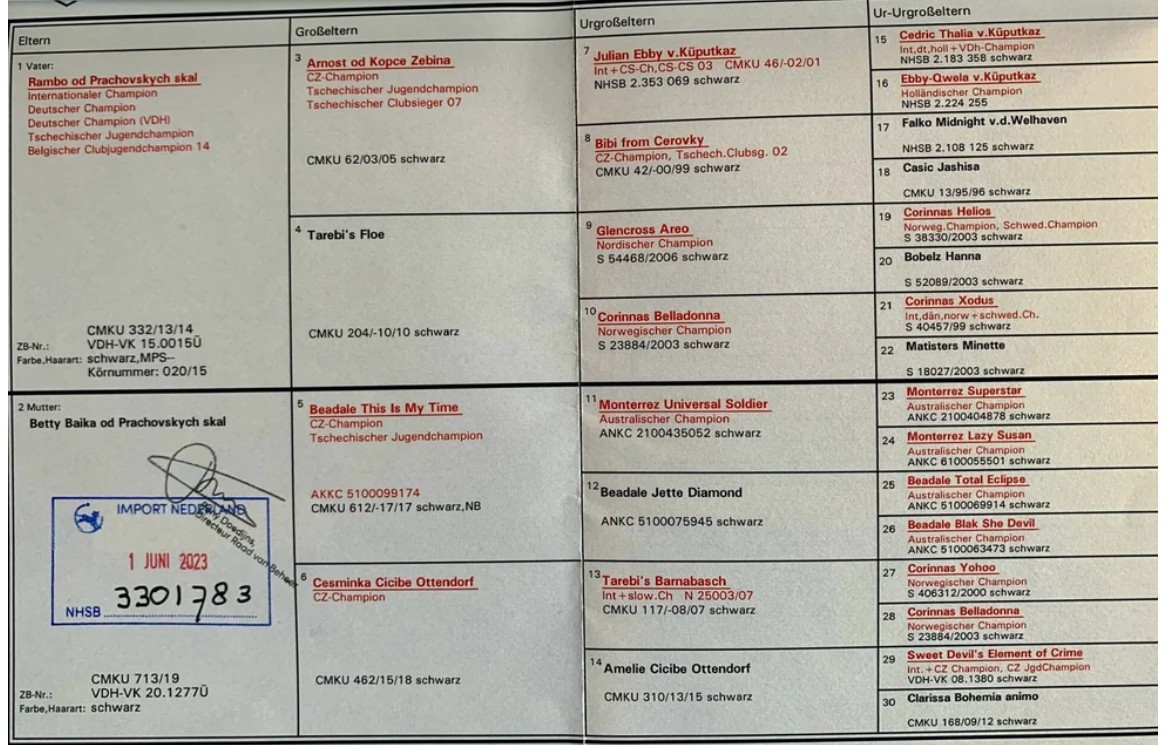 Eltern
Großeltern
Urgroßeltern
Ur-Urgroßeltern
1 Vater:
Rambo od Prachovskych skal
Internationaler Champion
Deutscher Champion
Deutscher Champion (VDH)
Tschechischer Jugendchampion
Belgischer Clubjugendchampion 14
CMKU 332/13/14
ZB-Nr.: VDH-VK 15.0015Ü
Farbe,Haarart: schwarz,MPS--
Körnummer: 020/15
2 Mutter:
Betty Baika od Prachovskych skal
IMPORT NEDERLAND
Directeur Raad van Beheer
1 JUNI 2023
NHSB 3301783
CMKU 713/19
ZB-Nr.: VDH-VK 20.1277Ü
Farbe,Haarart: schwarz
3 Arnost od Kopce Zebina
CZ-Champion
Tschechischer Jugendchampion
Tschechischer Clubsieger 07
CMKU 62/03/05 schwarz
4 Tarebi's Floe
CMKU 204/-10/10 schwarz
5 Beadale This Is My Time
CZ-Champion
Tschechischer Jugendchampion
AKKC 5100099174
CMKU 612/-17/17 schwarz,NB
6 Cesminka Cicibe Ottendorf
CZ-Champion
CMKU 462/15/18 schwarz
7 Julian Ebby v.Küputkaz
Int+CS-Ch,CS-CS 03 CMKU 46/-02/01
NHSB 2.353 069 schwarz
8 Bibi from Cerovky
CZ-Champion, Tschech.Clubsg. 02
CMKU 42/-00/99 schwarz
9 Glencross Areo
Nordischer Champion
S 54468/2006 schwarz
10 Corinnas Belladonna
Norwegischer Champion
S 23884/2003 schwarz
11 Monterrez Universal Soldier
Australischer Champion
ANKC 2100435052 schwarz
12 Beadale Jette Diamond
ANKC 5100075945 schwarz
13 Tarebi's Barnabasch
Int+slow.Ch N 25003/07
CMKU 117/-08/07 schwarz
14 Amelie Cicibe Ottendorf
CMKU 310/13/15 schwarz
15 Cedric Thalia v.Küputkaz
Int,dt,holl+VDh-Champion
NHSB 2.183 358 schwarz
16 Ebby-Qwela v.Küputkaz
Holländischer Champion
NHSB 2.224 255
17 Falko Midnight v.d.Welhaven
NHSB 2.108 125 schwarz
18 Casic Jashisa
CMKU 13/95/96 schwarz
19 Corinnas Helios
Norweg.Champion, Schwed.Champion
S 38330/2003 schwarz
20 Bobelz Hanna
S 52089/2003 schwarz
21 Corinnas Xodus
Int,dän,norw+schwed.Ch.
S 40457/99 schwarz
22 Matisters Minette
S 18027/2003 schwarz
23 Monterrez Superstar
Australischer Champion
ANKC 2100404878 schwarz
24 Monterrez Lazy Susan
Australischer Champion
ANKC 6100055501 schwarz
25 Beadale Total Eclipse
Australischer Champion
ANKC 5100069914 schwarz
26 Beadale Blak She Devil
Australischer Champion
ANKC 5100063473 schwarz
27 Corinnas Yohoo
Norwegischer Champion
S 406312/2000 schwarz
28 Corinnas Belladonna
Norwegischer Champion
S 23884/2003 schwarz
29 Sweet Devil's Element of Crime
Int.+CZ Champion, CZ JgdChampion
VDH-VK 08.1380 schwarz
30 Clarissa Bohemia animo
CMKU 168/09/12 schwarz